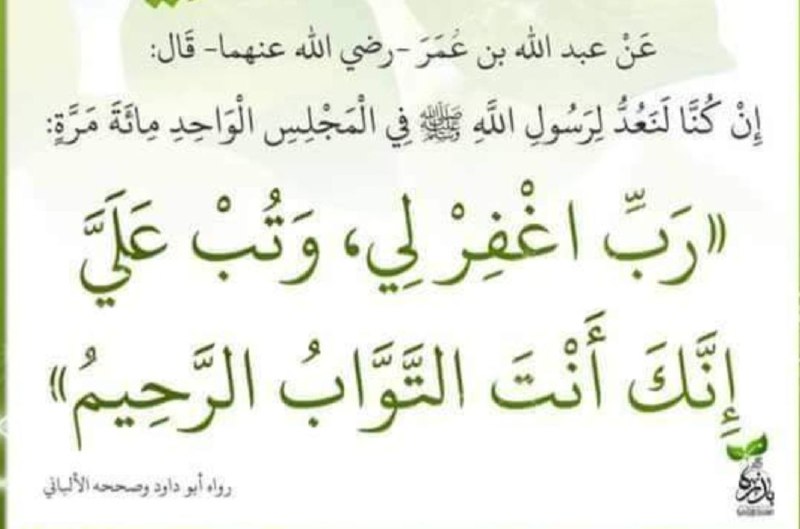 عَنْ عبد الله بن عُمَرَ -رضي الله عنهما- قَال:
إِنْ كُنَّا لَنَعُدُّ لِرَسُولِ اللَّهِ ﷺ فِي الْمَجْلِسِ الْوَاحِدِ مِائَةَ مَرَّةٍ:
«رَبِّ اغْفِرْ لِي، وَتُبْ عَلَيَّ
إِنَّكَ أَنْتَ التَّوَّابُ الرَّحِيمُ»
رواه أبو داود وصححه الألباني